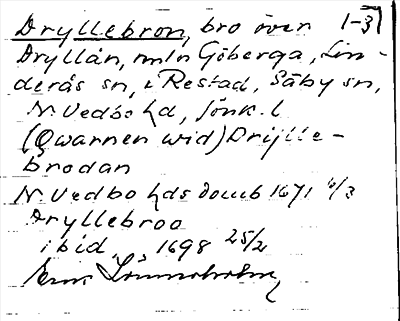 Dryllebron, bro över 1-3
Dryllån, mln Göberga, Lin-
derås sn, & Restad, Säby sn,
N. Vedbo hd, Jönk. l
(Qwarnen wid) Drijlle-
brodan
N. Vedbo hds domb 1671 6/3
Dryllebroo
ibid „ 1698 25/2